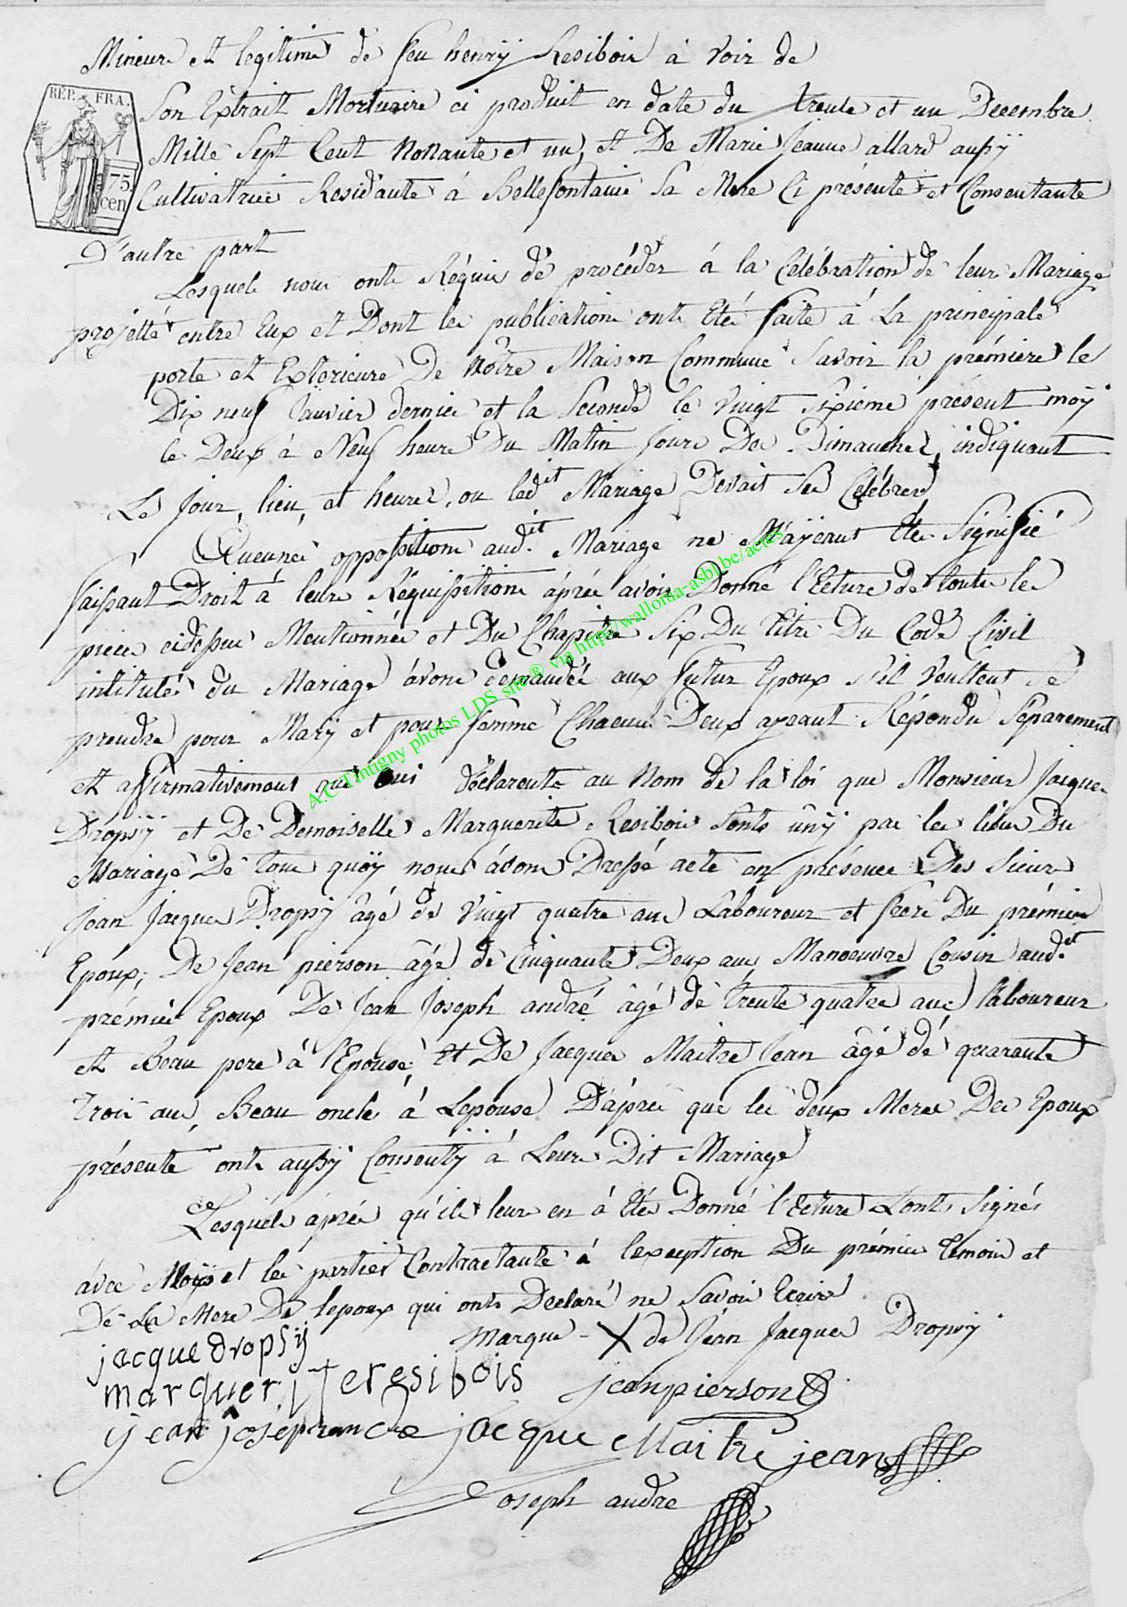 Mineure et legitime de feu henrÿ Resibois à Voir de
REP. FRA.
75 cen
Son Extrait Mortuaire ci produit en date du trente et un Decembre
Mille Sept Cent Nonante et un, et De Marie Jeanne allard aussÿ
Cultivatrice Residante à Bellefontaine Sa Mere Ci présente et Consentante
D'autre part
Lesquels nous onts Réquis de procéder à la Célébration de leur Mariage
projetté entre Eux et Dont les publications onts Etés faite à La principale
porte et Exterieure De Nôtre Maison Commune Savoir la prémiere le
Dix neuf Janvier dernier et la Seconde le Vingt Sixieme présent moÿ
les Deux à Neuf heure Du Matin Jours Des Dimanches, indiquant
Le Jour, lieu, et heures, ou ledit Mariage Devait Se Célébrer
Aucunes oppositions audit Mariage ne M'aÿeant Etés Signifié
faissant Droit à leurs Réquissitions áprés avoir Donné l'Ecture de toute les
pieces cidessus Mentionnées et Du Chapitre Six Du titre Du Code Civil
intitulés du Mariage ávons demandés aux futur Epoux s'il Veullent se
prendre pour Marÿ et pour femme Chacuns Deux ayeant Répondu Séparement
et affirmativement que oui déclaronts au Nom de la loi que Monsieur Jacques
Dropsÿ et De Demoiselle Marguerite Resibois Sonts ûnÿ par les liens Du
Mariage De tous quoÿ nous ávons Dressé acte en présence Des Sieurs
Jean Jacques Dropsÿ âgé de Vingt quatre ans Laboureur et frere Du prémier
Epoux, De Jean pierson âgé de Cinquante Deux ans Manoeuvre Cousin audit
prémier Epoux De Jean Joseph andré âgé de trente quatre ans laboureur
et Beau pere à l'Epouse, et De Jacques Maitre Jean âgé de quarante
trois ans, Beau oncle à Lepouse D'áprés que les deux Meres Des Epoux
présente onts aussÿ Consentÿ à Leurs Dit Mariage
Lesquéls áprés qu'ils leurs en à Etés Donné l'Ecture Lonts Signés
ávec Moÿ et les parties Contractante à l'exception Du prémier temoin et
De La Mere De lepoux qui onts Declaré ne Savoir Ecrire
jacque dropsij
Marque - X de Jean Jacques Dropsÿ
marguerite resibois
jean pierson
jean joseph andre
jacque Maitre jean
Joseph andre
A.C Tintigny photos LDS site® via http://wallonia-asbl.be/actes